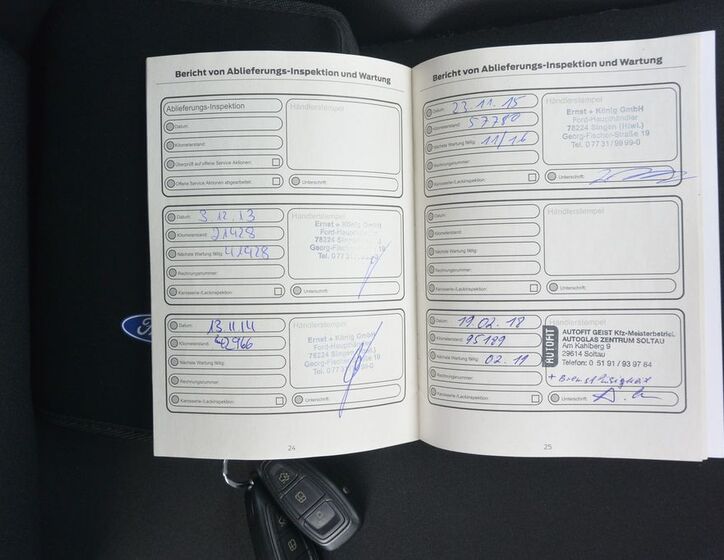 Bericht von Ablieferungs-Inspektion und Wartung
Ablieferungs-Inspektion
Datum:
Kilometerstand:
Überprüft auf offene Service Aktionen:
Offene Service Aktionen abgearbeitet:
Händlerstempel
Unterschrift:
Datum: 3.12.13
Kilometerstand: 21428
Nächste Wartung fällig: 41428
Rechnungsnummer:
Karosserie-/Lackinspektion:
Händlerstempel
Ernst + König GmbH
Ford-Haupthändler
78224 Singen
Georg-Fischer- 19
Tel. 0 77 31
Unterschrift:
Datum: 13.11.14
Kilometerstand: 42966
Nächste Wartung fällig:
Rechnungsnummer:
Karosserie-/Lackinspektion:
Händlerstempel
Ernst + König GmbH
Ford-Haupthändler
78224 Singen
Georg-Fischer-
Tel. 0 77 31
Unterschrift:
24
Bericht von Ablieferungs-Inspektion und Wartung
Datum: 23.11.15
Kilometerstand: 57780
Nächste Wartung fällig: 11/16
Rechnungsnummer:
Karosserie-/Lackinspektion:
Händlerstempel
Ernst + König GmbH
Ford-Haupthändler
78224 Singen (Htwl.)
Georg-Fischer-Straße 19
Tel. 0 77 31 / 99 99-0
Unterschrift:
Datum:
Kilometerstand:
Nächste Wartung fällig:
Rechnungsnummer:
Karosserie-/Lackinspektion:
Händlerstempel
Unterschrift:
Datum: 19.02.18
Kilometerstand: 95189
Nächste Wartung fällig: 02.19
Rechnungsnummer:
Karosserie-/Lackinspektion:
Händlerstempel
AUTOFIT
AUTOFIT GEIST Kfz-Meisterbetrieb
AUTOGLAS ZENTRUM SOLTAU
Am Kahlberg 9
29614 Soltau
Telefon: 0 51 91 / 93 97 84
+ Bremsflüssigkeit
Unterschrift:
25